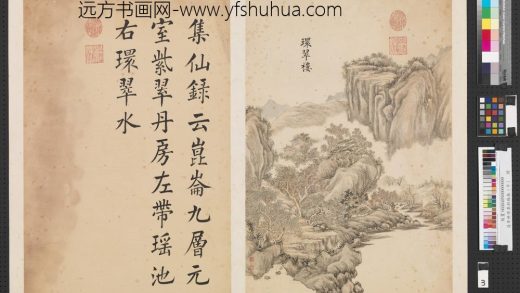 远方书画网-www.yfshuhua.com
環翠樓
集仙録云崑崙九層元
室紫翠丹房左帶瑶池
右環翠水
3